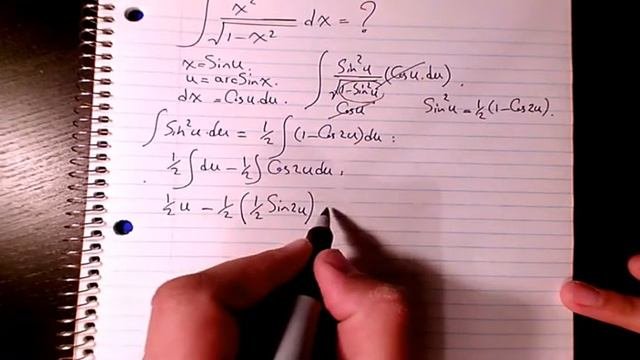 ∫ x²/√(1-x²) dx = ?
x = Sinu.
u = arcSinx.
dx = Cosu.du.
∫ Sin²u/√(1-Sin²u) (Cosu.du).
Cosu
Sin²u = 1/2 (1-Cos2u).
∫ Sin²u.du = 1/2 ∫ (1-Cos2u)du :
1/2 ∫ du - 1/2 ∫ Cos2udu,
1/2 u - 1/2 (1/2 Sin2u)